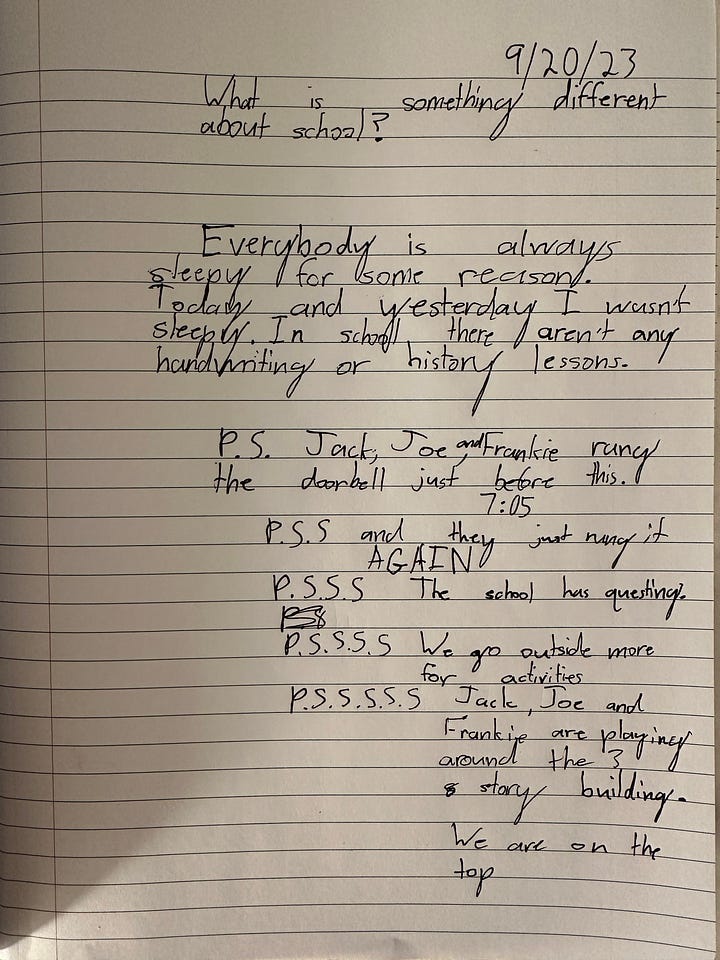 9/20/23
What is something different
about school?
Everybody is always
sleepy for some reason.
Today and yesterday I wasn't
sleepy. In school there aren't any
handwriting or history lessons.
P.S. Jack, Joe, and Frankie rung
the doorbell just before this.
7:05
P.S.S and they just rung it
AGAIN
P.S.S.S The school has questing.
P.S.S.S.S We go outside more
for activities
P.S.S.S.S.S Jack, Joe and
Frankie are playing
around the 3
story building.
We are on the
top